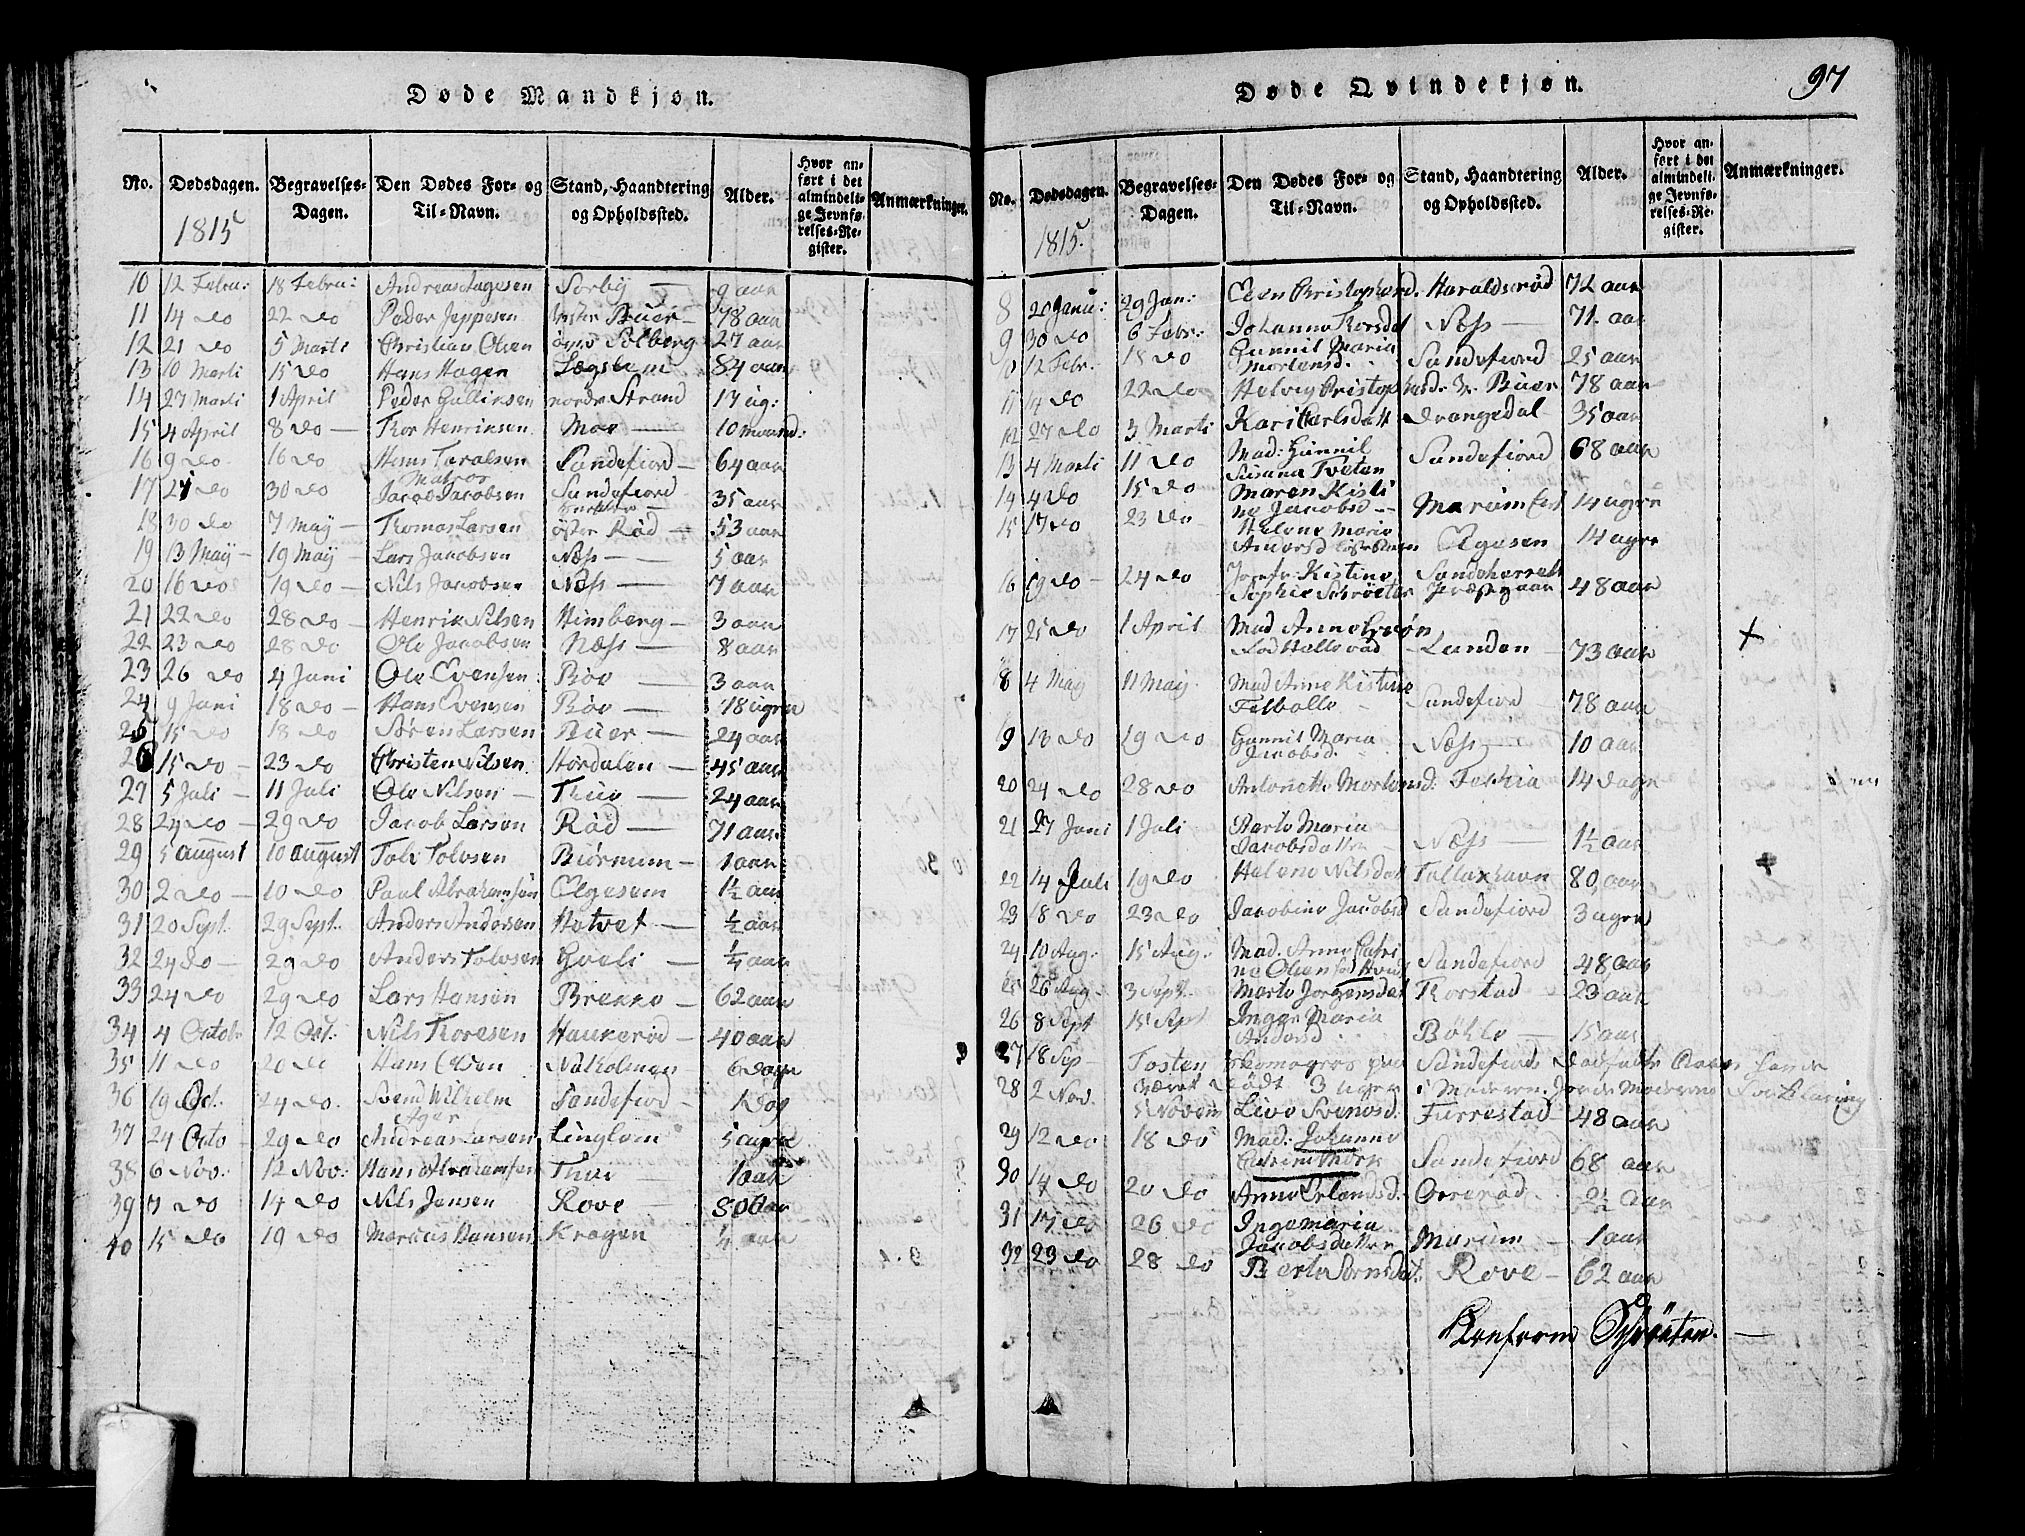 Døde Mandkjøn.
No. Dødsdagen. Begravelses-Dagen. Den Dødes For- og Til-Navn. Stand, Haandtering og Opholdssted. Alder. Hvor anført i det almindelige Jevnførelses-Register. Anmærkninger.
1815
10 12 Febru: 18 Febru: Andreas Aagesen Sørby 9 aar
11 14 do 22 do Peder Jeppesen Buer 78 aar
12 21 do 5 Marti Christian Olsen Solberg 27 aar
13 10 Marti 15 do Hans Hagen 84 aar
14 27 Marti 1 April Peder Gulliksen nordr Strand 17 ug:
15 4 April 8 do Thor Henriksen Moe 10 maaned:
16 9 do 16 do Hans Taralsen Sandefiord 64 aar
17 21 do 30 do Matros Jacob Jacobsen Sandefiord 35 aar
18 30 do 7 May Thomas Larsen øster Rød 53 aar
19 13 Maij 19 Maij Lars Jacobsen Næss 5 aar
20 16 do 19 do Nils Jacobsen Næss 7 aar
21 22 do 28 do Henrik Nilsen Himberg 3 aar
22 23 do 28 do Ole Jacobsen Næss 8 aar
23 26 do 4 Juni Ole Evensen Bøe 3 aar
24 9 Juni 18 do Hans Evensen Bøe 18 ugen
25 15 do 18 do Søren Larsen Buer 24 aar
26 15 do 23 do Christen Nilsen Hørdalen 45 aar
27 5 Juli 11 Juli Ole Nilsen Thue 24 aar
28 24 do 29 do Jacob Larsen Rød 71 aar
29 5 august 10 august Tolv Tolvsen Biørnum 1 aar
30 2 do 10 do Paul Abrahamsøn Elgesem 1½ aar
31 20 Sept. 29 Sept. Anders Andersen Helvet ½ aar
32 24 do 29 do Anders Tolvsen Hvali ¼ aar
33 24 do 29 do Lars Hansen Brekke 62 aar
34 4 Octob 12 Oct. Nils Thoresen Haukerød 40 aar
35 11 do 20 do Hans Olsen 6 dage
36 19 Oct. 24 do Wilhelm Sandefiord 1 dag
37 24 Octo 29 do Andreas Larsen Lingelem 5 ugre
38 6 Nov. 12 Nov: Hans Abrahamsen Thue 1 aar
39 7 do 14 do Nils Jensen Rove 80 aar
40 15 do 19 do Marcus Hansen Kragen ¼ aar
Døde Qvindekjøn.
97
No. Dødsdagen. Begravelses-Dagen. Den Dødes For- og Til-Navn. Stand, Haandtering og Opholdssted. Alder. Hvor anført i det almindelige Jevnførelses-Register. Anmærkninger.
1815.
8 20 Janu: 29 Jan: Christophersd. Haraldsrød 72 aar
9 30 do 6 Febr: Johanne Thorsdat Næss 71 aar
10 12 Febr. 18 do Gunnil Maria Mortensd. Sandefiord 25 aar
11 14 do 22 do Helvig Christophersdr Buer 78 aar
12 27 do 3 Marti Kari Carlsdatt drangedal 35 aar
13 4 Marti 11 do Mad: Gunnil Susana Tveten Sandefiord 68 aar
14 4 do 15 do Maren Kistine Jacobsd Marum 14 ugre
15 17 do 23 do Helene Maria Andersd Elgesem 14 ugre
16 19 do 24 do Jomfr: Kistine Sophie Schrøeter Sandeherred Præstegaar 48 aar
17 25 do 1 April Mad Anne fød Hallevad Lunden 73 aar
8 4 May 11 May Mad Anne Kistine Sandefiord 78 aar
9 13 do 19 do Gunnil Maria Jacobsd. Næss 10 aar
20 24 do 28 do Antonette Mortensd: 14 dage
21 27 Juni 1 Juli Marte Maria Jacobsdatter Næss 1½ aar
22 14 Juli 19 do Helene Nilsdat 80 aar
23 18 do 23 do Jacobine Jacobsd Sandefiord 3 ugre
24 10 Aug: 15 Aug: Mad. Anne Catrine Olsen fød Hvid Sandefiord 48 aar
25 26 Aug. 3 Sept. Marte Jørgensdat Thorstad 23 aar
26 8 Sept 15 Sept Inger Maria Andersd Bøhle 15 aar
27 18 Sep Tosten paa Sandefiord
28 2 Nov. 5 Novem Live Svensd. Furrestad 48 aar
29 12 do 18 do Mad: Johanne Sandefiord 68 aar
30 14 do 20 do Anne Erlandsd. 2½ aar
31 17 do 26 do Ingemaria Jacobsdatter Marum 1 aar
32 23 do 28 do Berte Sørnsdat. Rove 62 aar
Konform Schrøeter.